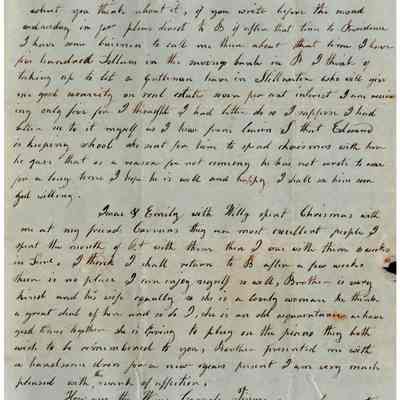 what you think about it, if you write before the second
wednesday in Jan please direct to B if after that time to Providence
I have some business to call me there about that time I have
five hundred Dollars in the saving bank in P I think of
taking up to let a Gentleman have in Stillwater who will give
me good security on real estate seven per cent interest I am receiv
ing only five for I thought I had better do so I suppose I had
better see to it myself as I have from Lewis I that Edward
is keeping school she sent for him to spend christmas with her
he gave that as a reason for not coming he has not wrote to me
for a long time I hope he is well and happy I shall see him soon
God willing.
Isaac & Emily with Willy spent Chrismas with
me at my friends they are most excellent people I
spent the month of Oct with them then I was with them 2 weeks
in June. I think I shall return to B after a few weeks
there is no place I can enjoy myself so well, Brother is very
kind and his wife equally so she is a lovely woman he thinks
a great deal of her and so do I, she is an old acquaintance we have
good times together she is Learning to play on the piano they both
wish to be remembered to you, Brother presented me with
a handsome dress for a new years present I am very much
pleased with the mark of affection.
How are the